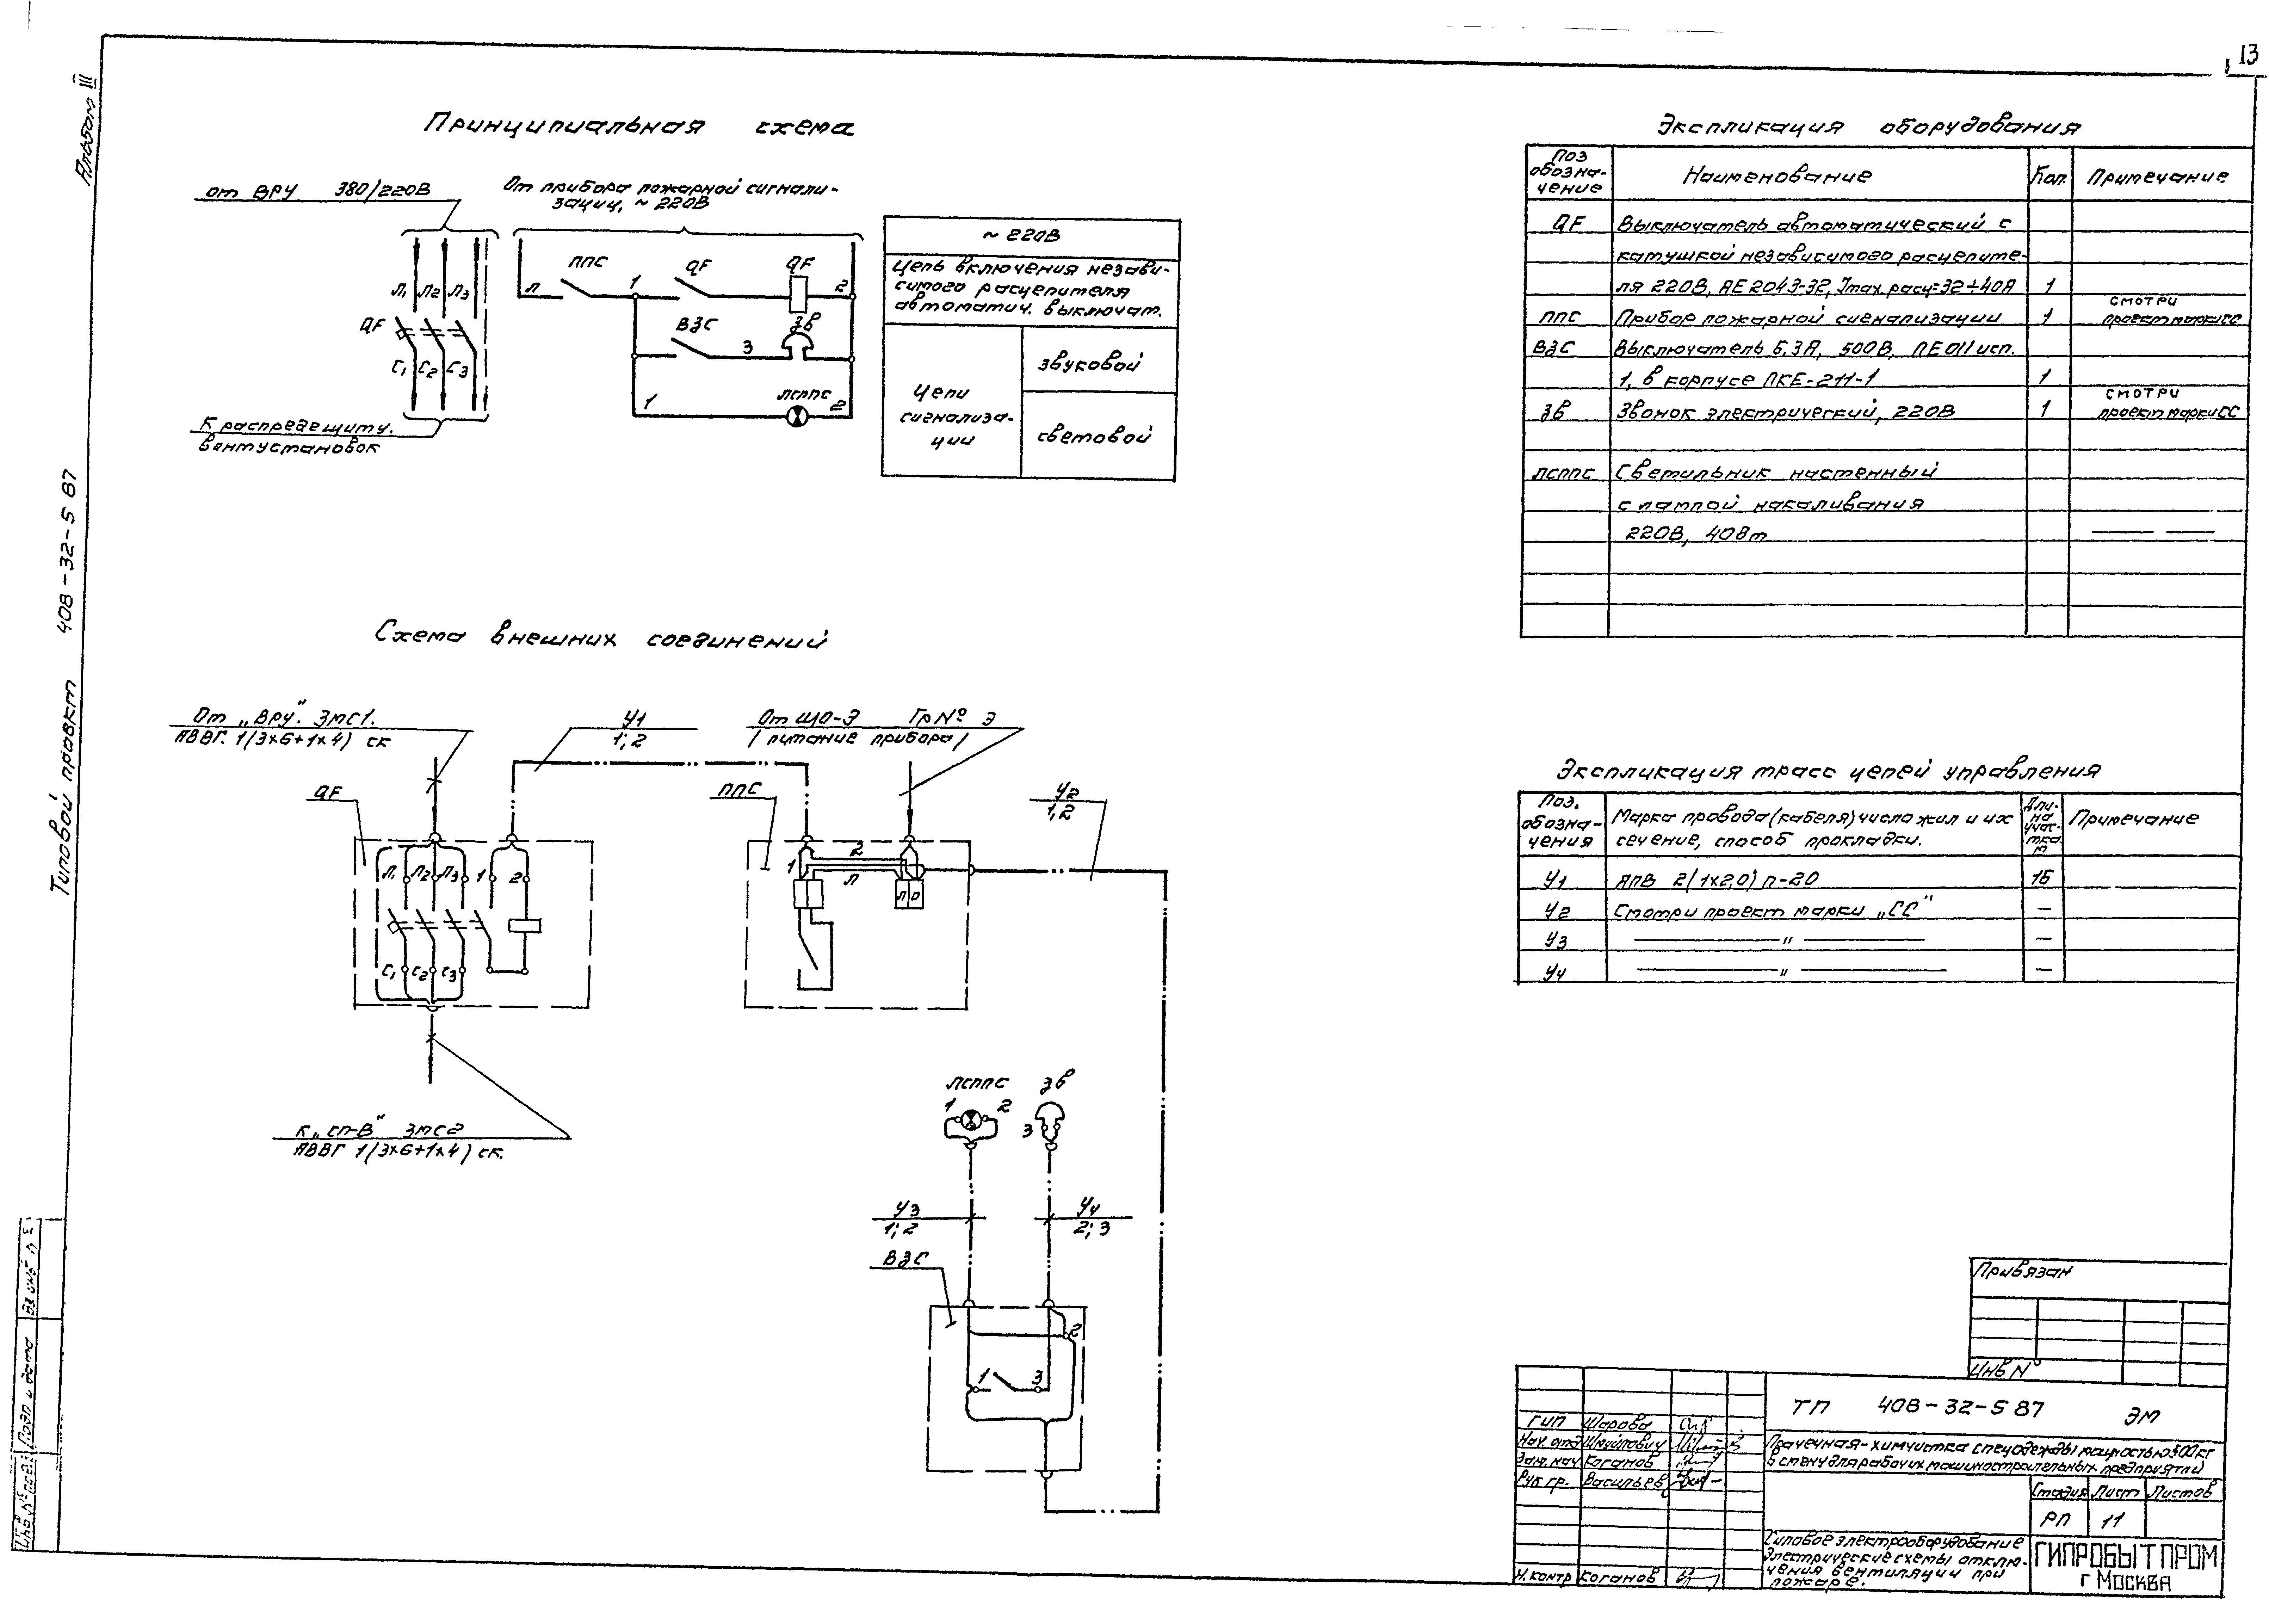 13
Альбом III
Типовой проект 408-32-5 87
Принципиальная схема
от ВРУ 380/220В
От прибора пожарной сигнали-
зации, ~ 220В
Л1 Л2 Л3
QF
С1 С2 С3
К распредещиту.
вентустановок
Л
ППС
1
QF
QF
2
ВЗС
3
ЗВ
1
ЛСППС
2
~ 220В
Цепь включения незави-
симого расцепителя
автоматич. выключат.
Цепи
сигнализа-
ции
звуковой
световой
Экспликация оборудования
Поз обозна-чение Наименование Кол. Примечание
QF Выключатель автоматический с
катушкой независимого расцепите-
ля 220В, АЕ 2043-32, Jmax.расц=32÷40А 1
ППС Прибор пожарной сигнализации 1 смотри проект марки СС
ВЗС Выключатель 6.3А, 500В, ПЕ011 исп.
1, в корпусе ПКЕ-211-1 1
ЗВ Звонок электрический, 220В 1 смотри проект марки СС
ЛСППС Светильник настенный
с лампой накаливания
220В, 40Вт
Схема внешних соединений
От „ВРУ". ЭМС1.
АВВГ. 1(3х6+1х4) ск
У1
1; 2
От ЩО-Э Гр№ Э
/ питание прибора/
QF
ППС
У2
1,2
Л1 Л2 Л3 1 2
С1 С2 С3
1 2
Л
Л 0
К „СП-В" ЭМС2
АВВГ 1(3х6+1х4) ск.
ЛСППС ЗВ
1 2
3
У3
1; 2
У4
2; 3
ВЗС
2
1 3
Экспликация трасс цепей управления
Поз. обозна-чения Марка провода (кабеля) число жил и их сечение, способ прокладки. Дли-на учас-тка, м Примечание
У1 АПВ 2(1х2,0) п-20 15
У2 Смотри проект марки „СС" —
У3 — " — —
У4 — " — —
Привязан
Инв N°
ТП 408-32-5 87 ЭМ
ГИП Шарова
Нач. отд
Зам. нач Коганов
Рук гр. Васильев
Н. контр Коганов
Прачечная-химчистка спецодежды мощностью 500 кг
в смену для рабочих машиностроительных предприятий
Стадия Лист Листов
РП 11
Силовое электрооборудование
Электрические схемы отклю-
чения вентиляции при
пожаре.
ГИПРОБЫТПРОМ
г Москва
Подп и дата